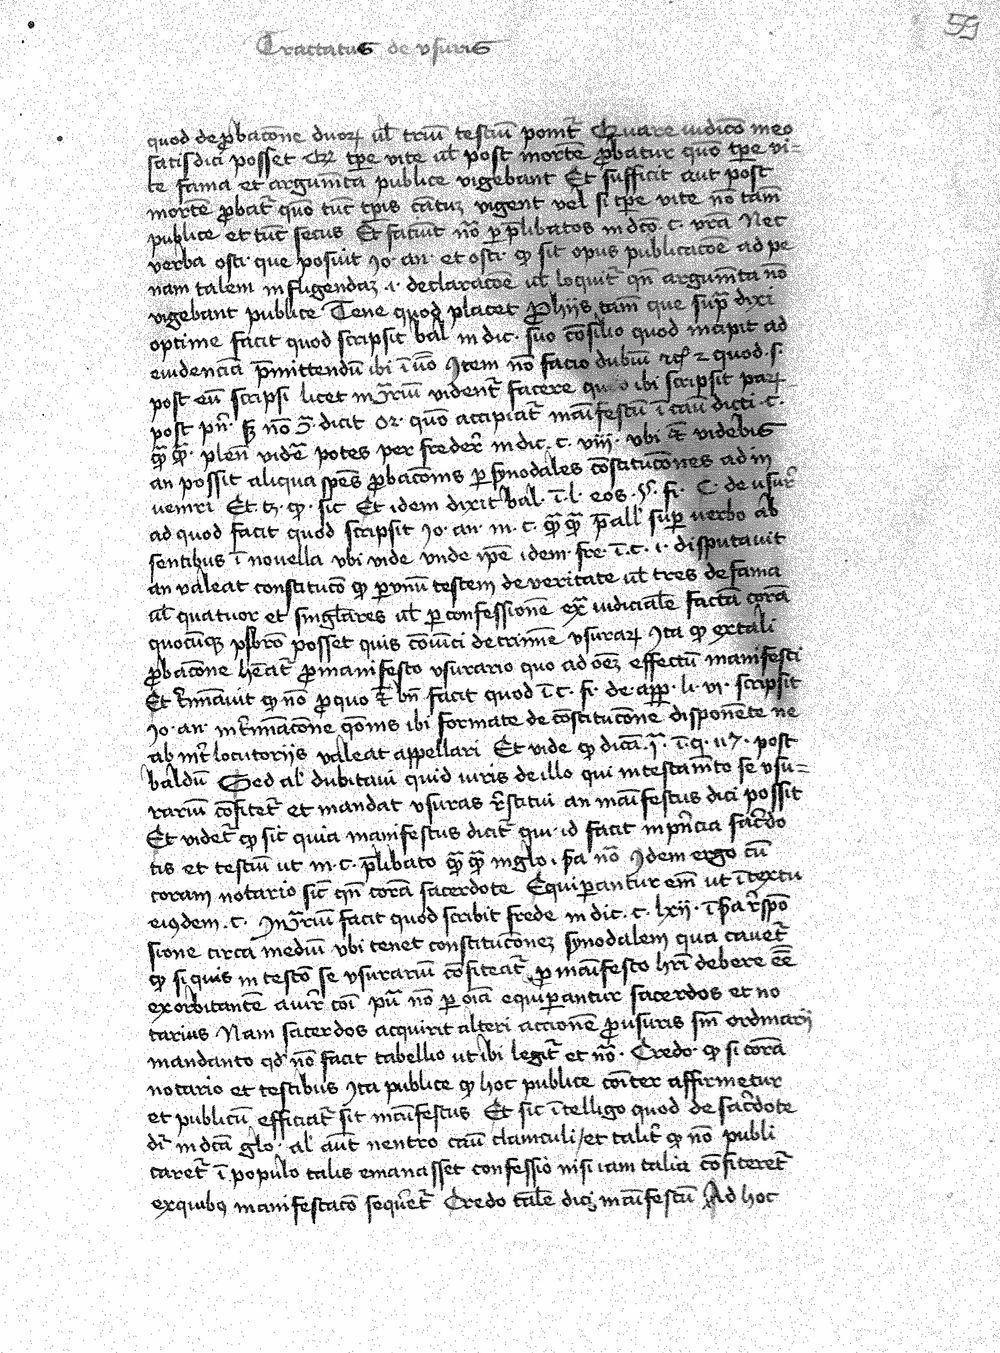 Tractatus de vsuris
59
quod de ꝓbacōne duoꝝ ul̄ triū testiū ponit᷑ Quare iudicō meo
satis dici posset qꝫ tꝑe vite ul̄ post mortē ꝓbatur quo tꝑe vi=
te fama et argumēta publice vigebant Et sufficit aut post
mortē ꝓbat᷑ quo tūc tꝑis vigent vel si tꝑe vite nō tam
publice et tūc secus Et faciūt nō ꝑ p̄libatos in dco. c. vr̄a Nec
verba osti. que posuit Jo. an. et osti. qꝫ sit opus publicacōe ad pe
nam talem infligendaꝫ .i. declaracōe ul̄ loquit᷑ qn̄ argumēta nō
vigebant publice Tene quod placet Pro hijs tam̄ que supͣ dixi
optime facit quod scripsit bal in dic. suo cōsilio quod incipit ad
euidenciā p̄mittendū ibi Jtem nō facio dubiū quod .s.
post eū scripsi licet 9ͣriū vident᷑ facere ibi scripsit
post nō dicit quo accipiat᷑ māifestū ī cāu dicti .c.
qͣ qͣ. plen̄ videͤ potes per freder̄ in dic. c. viii. vbi videbis
an possit aliqua spēs ꝓbacōnis ꝑ synodales cōstitucōnes ad in
uenri Et. qꝫ. sic Et idem dixit bal. ī. l. eos .§. fi. C. de vsur̄
ad quod facit quod scripsit Jo. an. in. c. qͣ qͣ p̄all̄ suꝑ verbo ab
sentibus ī nouella vbi vide vnde ip̄e idem fre. ī. c. i. disputauit
an valeat constitucō qꝫ ꝑ vnū testem de veritate ul̄ tres de fama
ul̄ quatuor et singlares ul̄ ꝑ confessionē exͣ iudicialē factā corā
quocūqꝫ pſbrō posset quis cōuīci de crimīe vsuraꝝ Jta qꝫ ex tali
ꝓbacōne heāt᷑ ꝓ manifesto vsurario quo ad oēꝫ effectū manifesti
Et t᷑minauit qꝫ nō ꝓ quo bn̄ facit quod ī c. fi. de app. li. vi. scripsit
Jo. an. in t᷑minacōne qōnis ibi formate de cōstitucōne disponēte ne
ab int᷑ locutorijs valeat appellari Et vide qꝫ dicā post
baldū Sed al̄ dubitaui quid iuris de illo qui in testamēto se vsu=
rariū cōfitet᷑ et mandat vsuras r̄stitui an māifestus dici possit
Et videt᷑ qꝫ sic quia manifestus dicit᷑ qui id facit in pn̄cia sac̄do
tis et testiū ut in. c. p̄libato qͣ qͣ in glo. i. pͣa nō Jdem ergo cū
coram notario sic̄ qn̄ corā sacerdote Equipantur em̄ ut ī textu
eiusdem .c. Jn 9ͣriū facit quod scribit frede in dic. c. lxii. ī pͣa r̄spō
sione circa mediū vbi tenet constitucōneꝫ synodalem qua cauet᷑
qꝫ si quis in testō se vsurariū cōfiteat᷑ ꝓ māifesto hr̄i debere eē̄
exorbitantē a iur̄ cōi pͥū nō ꝑ oīa equipantur sacerdos et no
tarius Nam sacerdos acquirit alteri accionē ꝓ vsuris sm̄ ordinarij
mandanto qd̄ nō facit tabellio ut ibi legit᷑ et nō. Credo qꝫ si corā
notario et testibus Jta publice qꝫ hoc publice cōit᷑er affirmetur
et publicū efficiat᷑ sit māifestus Et sic ītelligo quod de sac̄dote
dr̄ in dcā glo. al̄ aūt nentro cāu clamculi / et talit᷑ qꝫ nō publi
caret᷑ ī populo talis emanasset confessio nisi iam talia cōfiteret᷑
ex quibꝰ manifestacō sequeret᷑ Credo talē dici māifestū Ad hoc